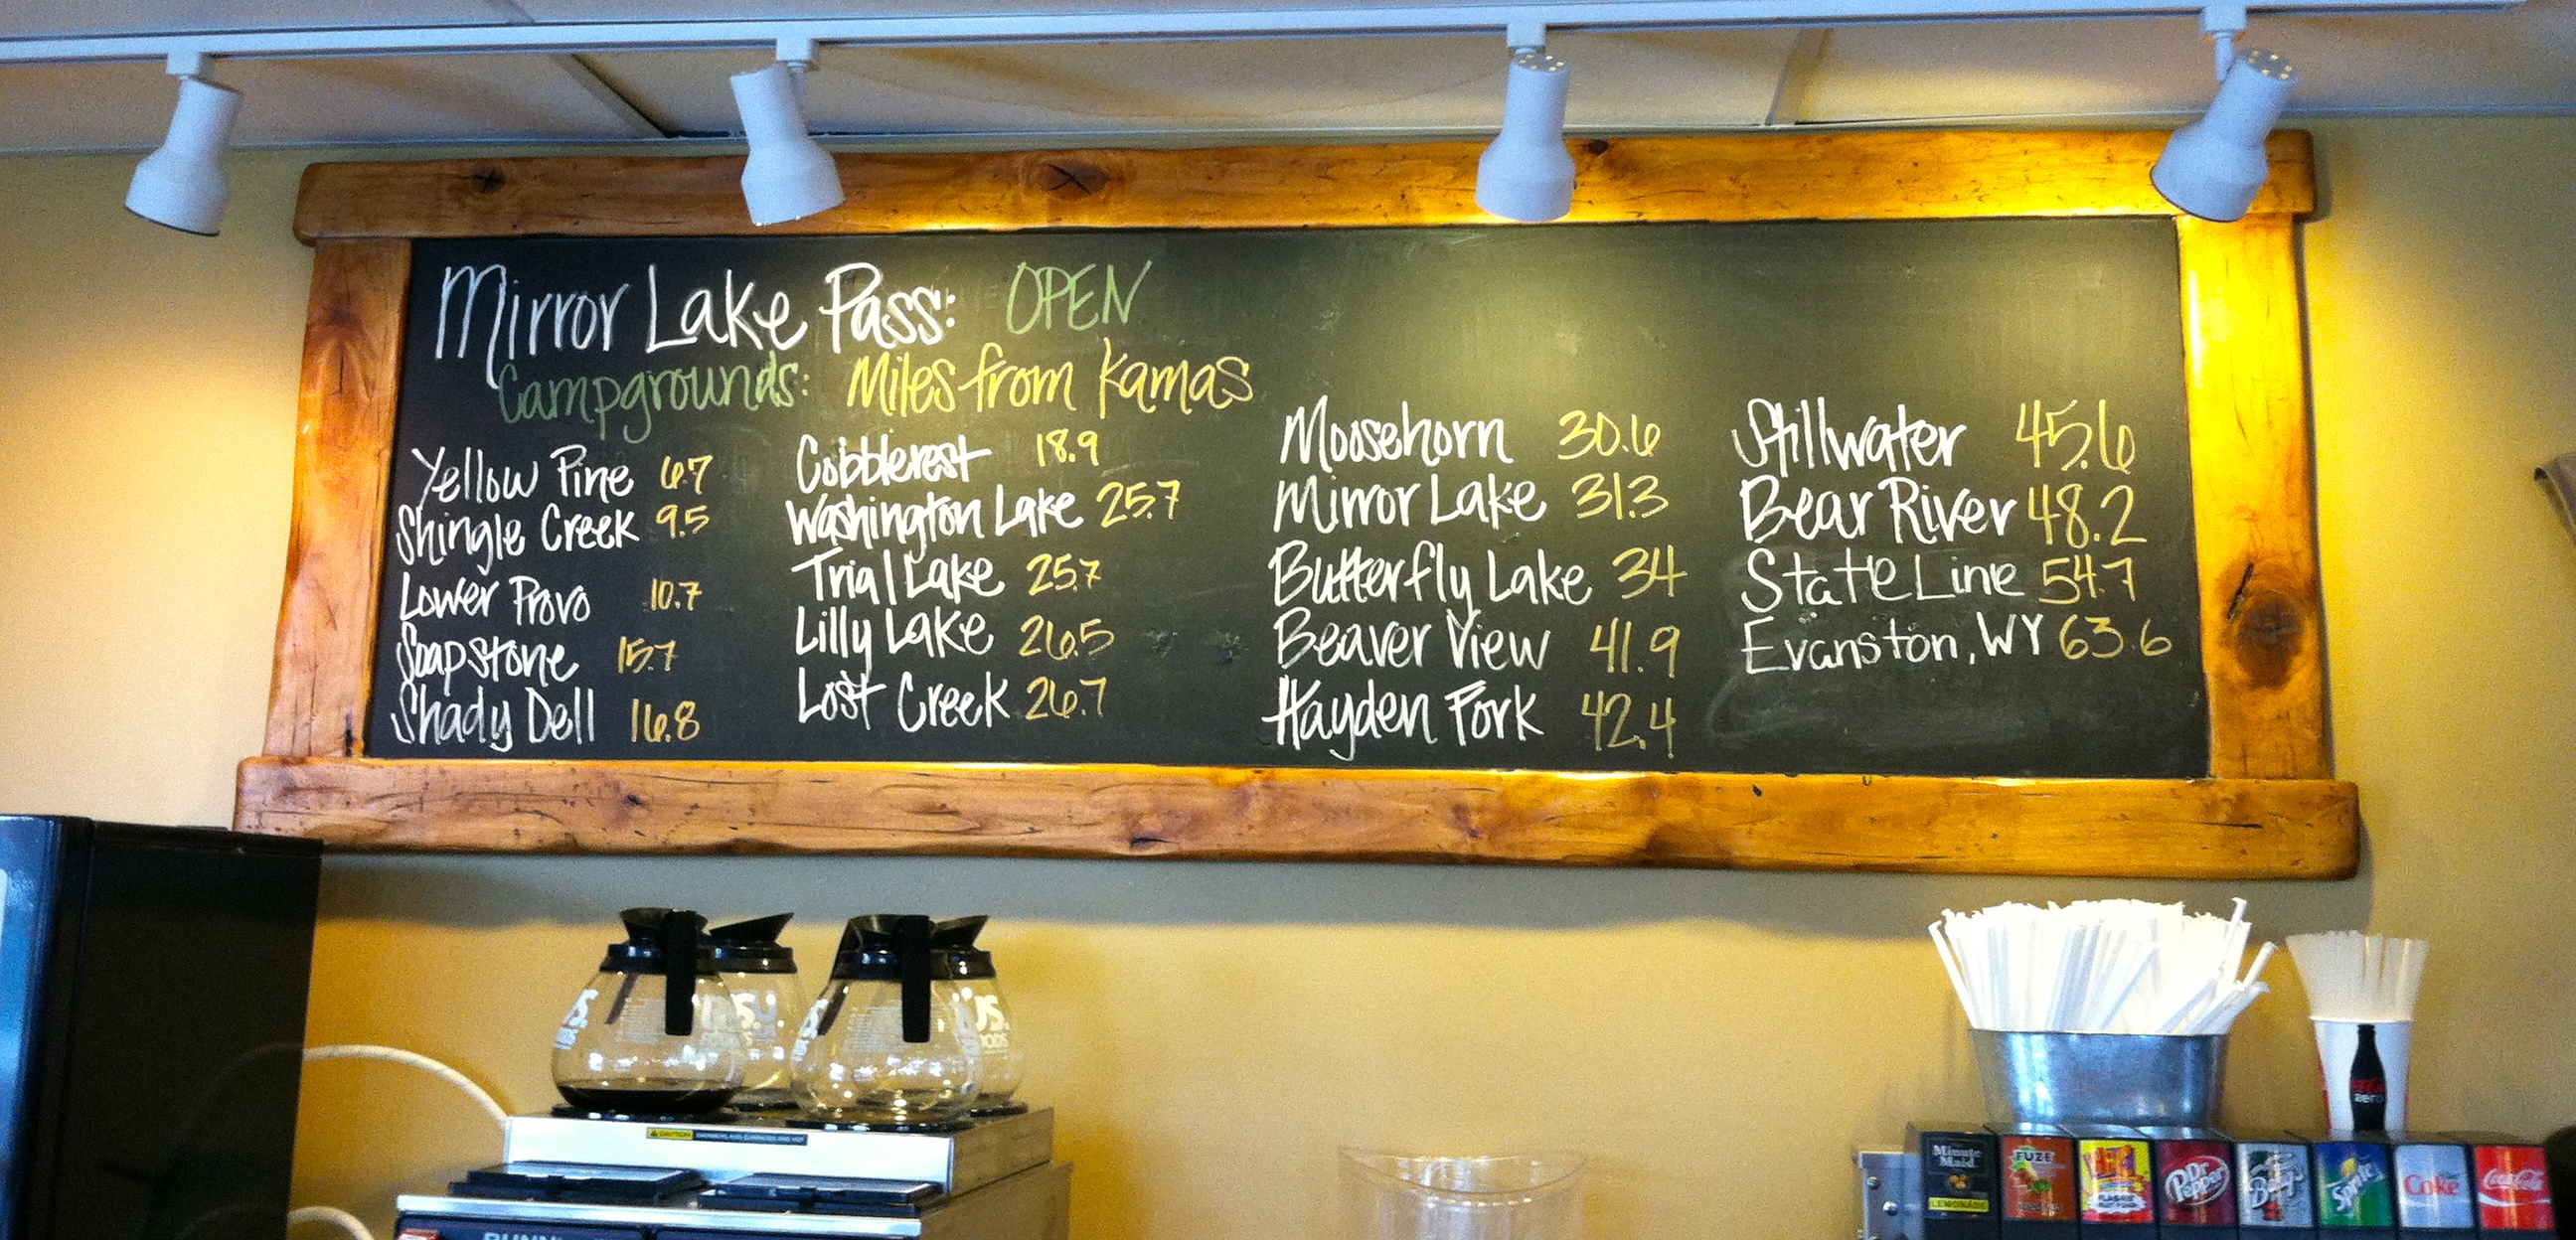 Mirror Lake Pass: OPEN
Campgrounds: Miles from Kamas
Yellow Pine 6.7
Shingle Creek 9.5
Lower Provo 10.7
Soapstone 15.7
Shady Dell 16.8
Cobblerest 18.9
Washington Lake 25.7
Trial Lake 25.7
Lilly Lake 26.5
Lost Creek 26.7
Moosehorn 30.6
Mirror Lake 31.3
Butterfly Lake 34
Beaver View 41.9
Hayden Fork 42.4
Stillwater 45.6
Bear River 48.2
State Line 54.7
Evanston, WY 63.6
CAUTION
Minute
Maid
LEMONADE
FUZE
Dr
Pepper
Barq's
Sprite
Coke
Coca-Cola